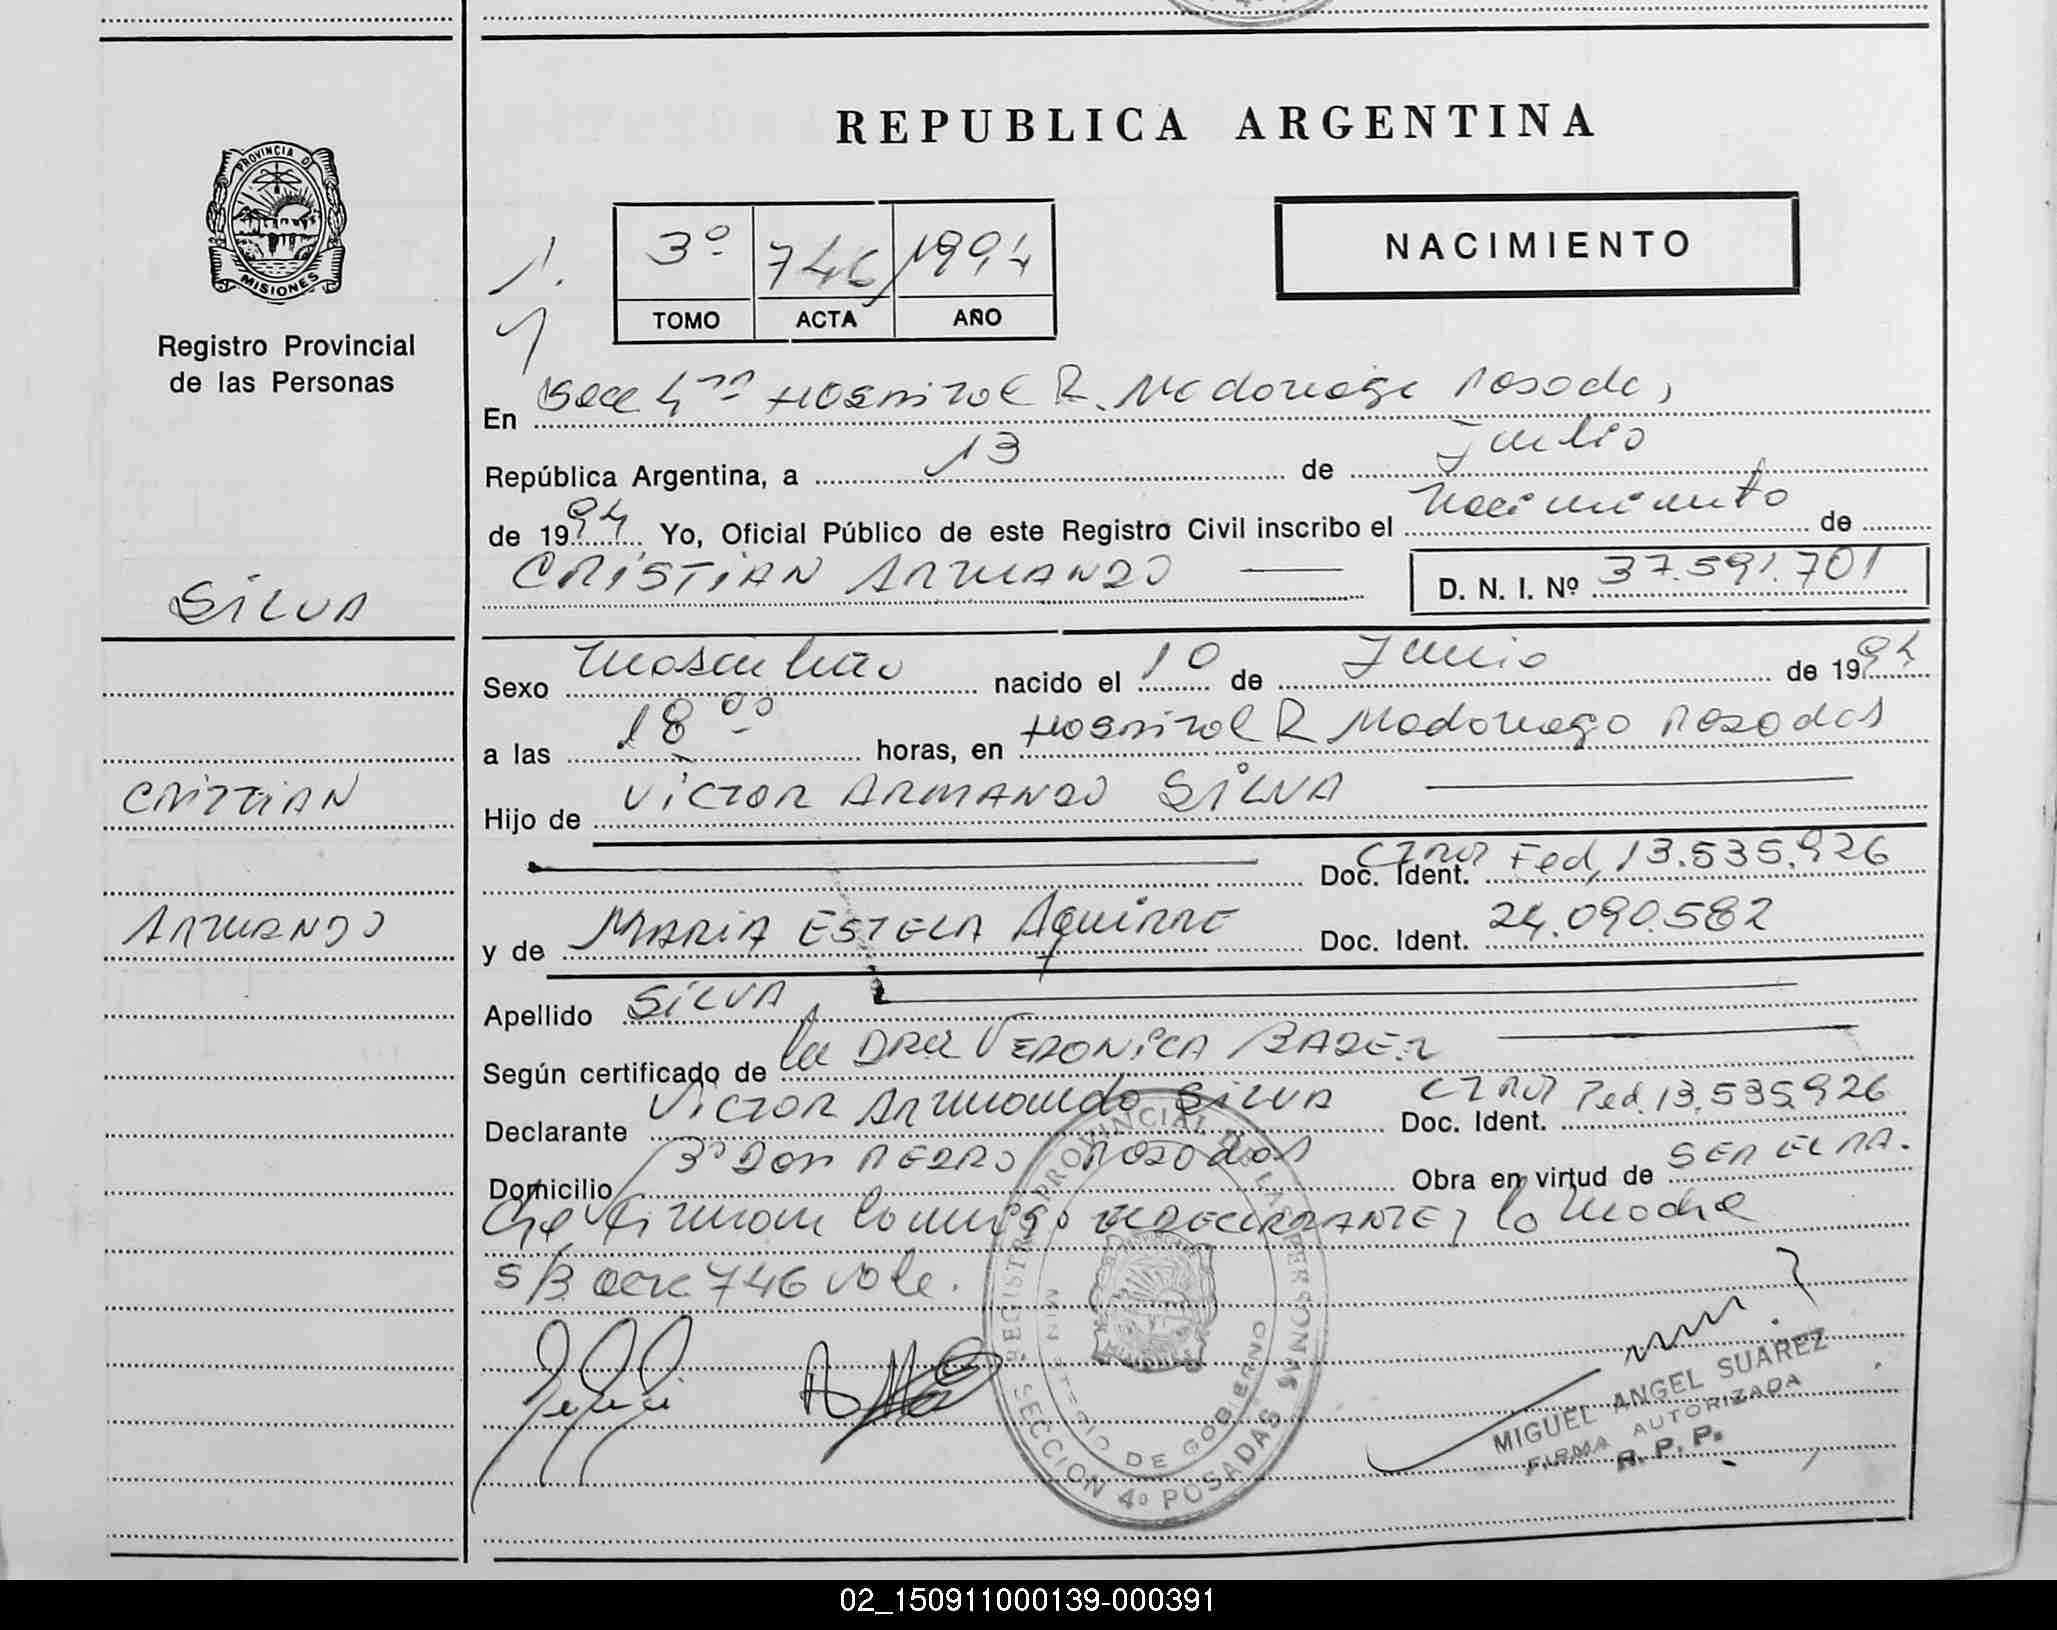 REPUBLICA ARGENTINA
PROVINCIA DE
MISIONES
Registro Provincial
de las Personas
NACIMIENTO
3º 746 1994
TOMO ACTA AÑO
En Secc 4ta Hospital R. Madariaga Posadas
República Argentina, a 13 de Julio
de 1994 Yo, Oficial Público de este Registro Civil inscribo el Nacimiento de
CRISTIAN ARMANDO D. N. I. Nº 37.591.701
SILVA
CRISTIAN
ARMANDO
Sexo Masculino nacido el 10 de Junio de 1994
a las 18 00 horas, en Hospital R Madariaga Posadas
Hijo de VICTOR ARMANDO SILVA
Doc. Ident. Fed. 13.535.926
y de MARIA ESTELA Aguirre Doc. Ident. 24.090.582
Apellido SILVA
Según certificado de la DRA VERONICA BADER
Declarante Victor Armando Silva Doc. Ident. Fed. 13.535.926
Domicilio Bº DON PEDRO Posadas Obra en virtud de SER EL PA.
dre firman conmigo EL DECLARANTE y la Madre
S/B acta 746 vale.
REGISTRO PROVINCIAL DE LAS PERSONAS
MINISTERIO DE GOBIERNO
SECCION 4º POSADAS
MIGUEL ANGEL SUAREZ
FIRMA AUTORIZADA
R. P. P.
02_150911000139-000391